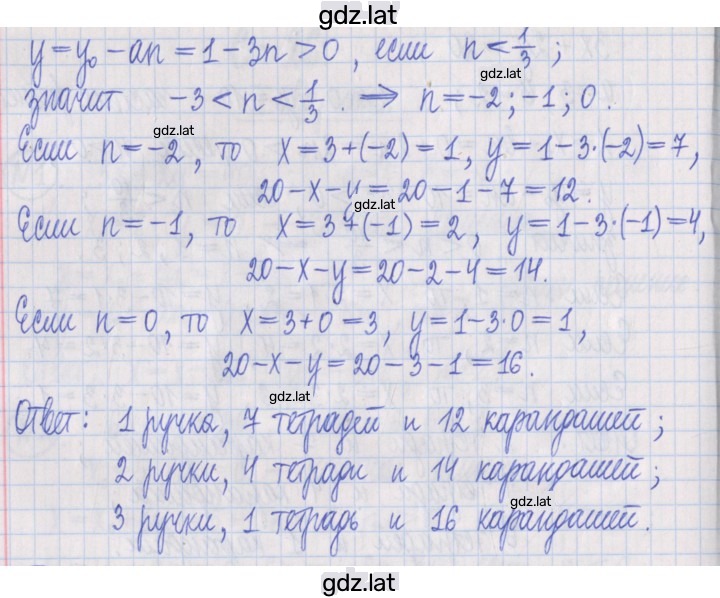 gdz.lat
y = y₀ − an = 1 − 3n > 0, если n < 1/3;
gdz.lat
значит −3 < n < 1/3. ⇒ n = −2; −1; 0.
gdz.lat
Если n = −2, то x = 3 + (−2) = 1, y = 1 − 3·(−2) = 7,
20 − x − y = 20 − 1 − 7 = 12.
gdz.lat
Если n = −1, то x = 3 + (−1) = 2, y = 1 − 3·(−1) = 4,
20 − x − y = 20 − 2 − 4 = 14.
Если n = 0, то x = 3 + 0 = 3, y = 1 − 3·0 = 1,
20 − x − y = 20 − 3 − 1 = 16.
gdz.lat
Ответ: 1 ручка, 7 тетрадей и 12 карандашей;
2 ручки, 4 тетради и 14 карандашей;
gdz.lat
3 ручки, 1 тетрадь и 16 карандашей.
gdz.lat